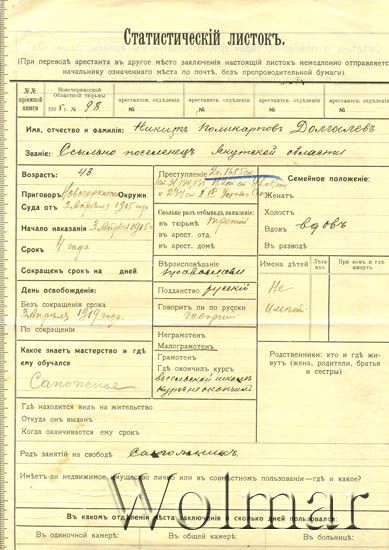 Статистическій листокъ.
(При переводѣ арестанта въ другое мѣсто заключенія листокъ немедленно отправляется
начальнику означеннаго мѣста по почтѣ, безъ препроводительной бумаги).
№№ пріемной книги
Новочеркасской Областной тюрьмы
1915 г. № 98
арестантск. отдѣленія №
арестантск. отдѣленія №
арестантск. отдѣленія №
арестантск. отдѣленія №
Имя, отчество и фамилія: Никита
Званіе: Ссыльно поселенецъ Якутской области
Возрастъ: 43
Приговоръ Новочеркасск. Окружн.
Суда отъ 3 Апрѣля 1915 года
Начало наказанія 3 Апрѣля 1915 г.
Срокъ 4 года
Сокращенъ срокъ на дней.
День освобожденія:
Безъ сокращенія срока
3 апрѣля 1919 года.
По сокращеніи
Какое знаетъ мастерство и гдѣ
ему обучался
Сапожное
Преступленіе 2 ч. 1655 ст.
Сколько разъ отбывалъ наказаніе:
въ тюрьмѣ третій
въ арест. отд.
въ арест. домѣ
Вѣроисповѣданіе
православн
Подданство русскій
Говоритъ ли по русски
говоритъ
Неграмотенъ
Малограмотенъ.
Грамотенъ
Гдѣ окончилъ курсъ
въ сельской школѣ
курса не окончилъ
Семейное положеніе:
Женатъ
Холостъ
Вдовъ вдовъ
Въ разводѣ
Имена дѣтей
Лѣта ихъ
При комъ и гдѣ живутъ
Не
имѣетъ
Родственники: кто и гдѣ живутъ (жена, родители, братья
и сестры)
Гдѣ находится видъ на жительство
Откуда онъ выданъ
Когда оканчивается ему срокъ
Родъ занятій на свободѣ Сапожникъ
Имѣетъ-ли недвижимое имущество лично или въ совмѣстномъ пользованіи—гдѣ и какое?
Wolmar
Въ какомъ отдѣленіи мѣста заключенія и сколько дней пользовался:
Въ одиночной камерѣ:
Въ общей камерѣ:
Въ больницѣ: